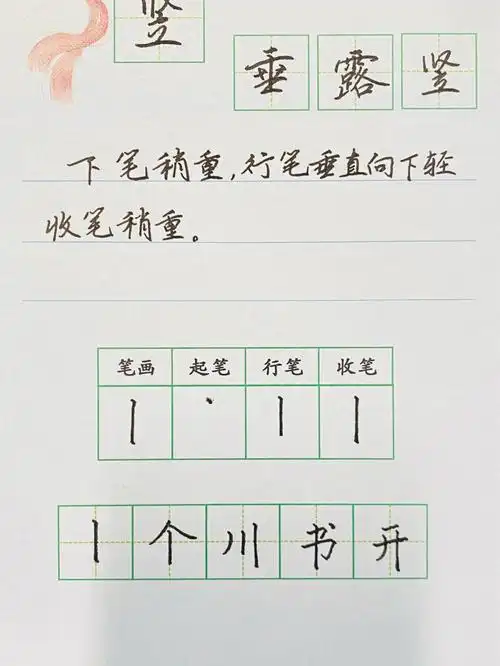 竖
垂露竖
下笔稍重,行笔垂直向下轻
收笔稍重。
笔画 起笔 行笔 收笔
丨 丶 丨 丨
丨个川书开